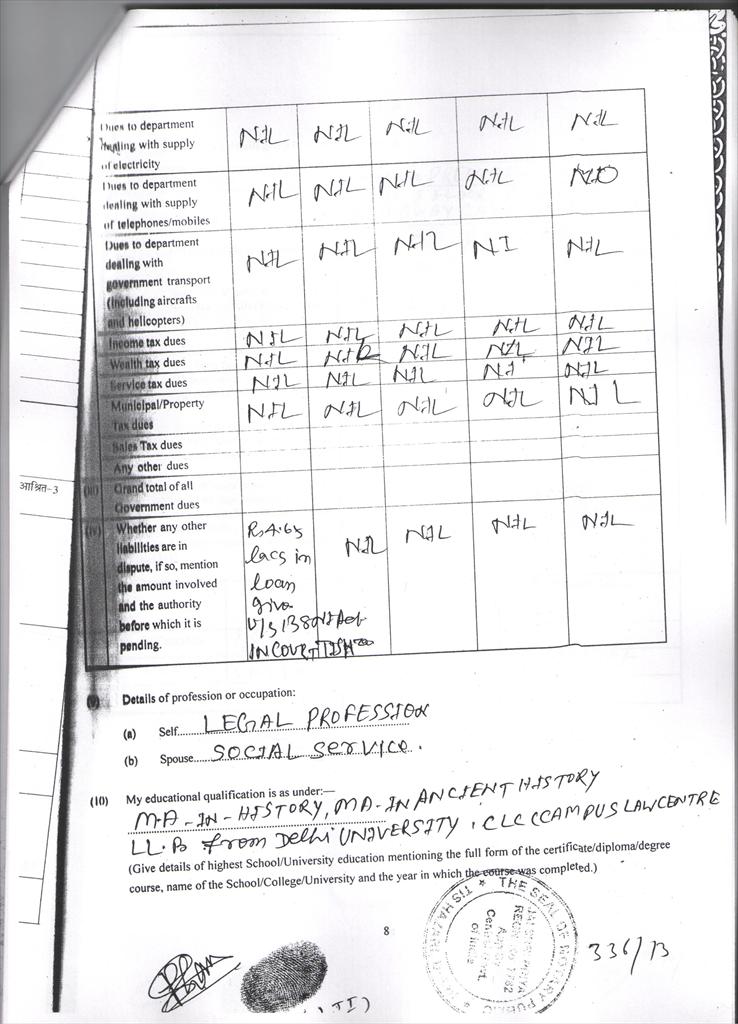 Dues to department
dealing with supply
of electricity
NIL NIL NIL NIL NIL
Dues to department
dealing with supply
of telephones/mobiles
NIL NIL NIL NIL
Dues to department
dealing with
government transport
(including aircrafts
and helicopters)
NIL NIL NIL NI NIL
Income tax dues NIL NIL NIL NIL NIL
Wealth tax dues NIL NIL NIL NIL NIL
Service tax dues NIL NIL NIL NI NIL
Municipal/Property
Tax dues
NIL NIL NIL NIL NIL
Sales Tax dues
Any other dues
आश्रित-3
(iii) Grand total of all
Government dues
(iv) Whether any other
liabilities are in
dispute, if so, mention
the amount involved
and the authority
before which it is
pending.
lacs in
loan
give
U/S 138
IN COURT
NIL NIL NIL NIL
Details of profession or occupation:
(a) Self LEGAL PROFESSION
(b) Spouse SOCIAL SERVICE.
(10) My educational qualification is as under:—
M.A-IN-HISTORY, MA-IN ANCIENT HISTORY
LL.B from Delhi UNIVERSITY, CLC (CAMPUS LAW CENTRE
(Give details of highest School/University education mentioning the full form of the certificate/diploma/degree
course, name of the School/College/University and the year in which the course was completed.)
8
THE SEAL OF NOTARY PUBLIC
336/13